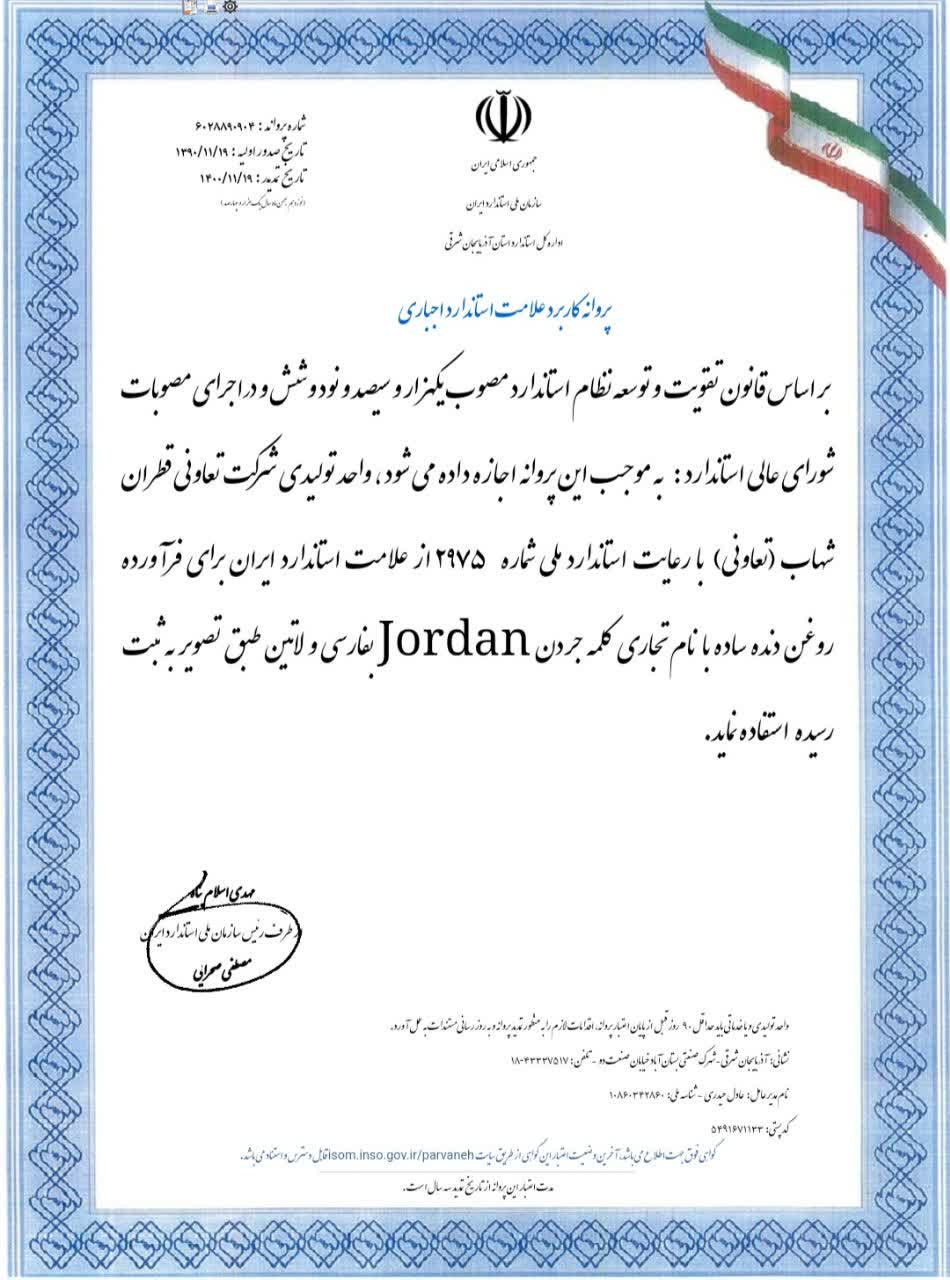 شماره پروانه : ۶۰۲۸۸۹۰۹۰۴
تاریخ صدور اولیه : ۱۳۹۰/۱۱/۱۹
تاریخ تمدید : ۱۴۰۰/۱۱/۱۹
(نوزدهم بهمن ماه سال یک هزار و چهارصد)
جمهوری اسلامی ایران
سازمان ملی استاندارد ایران
اداره کل استاندارد استان آذربایجان شرقی
پروانه کاربرد علامت استاندارد اجباری
بر اساس قانون تقویت و توسعه نظام استاندارد مصوب یکهزار و سیصد و نود و شش و در اجرای مصوبات
شورای عالی استاندارد : به موجب این پروانه اجازه داده می شود ، واحد تولیدی شرکت تعاونی قطران
شهاب (تعاونی) با رعایت استاندارد ملی شماره ۲۹۷۵ از علامت استاندارد ایران برای فرآورده
روغن دنده ساده با نام تجاری کلمه جردن Jordan بفارسی و لاتین طبق تصویر به ثبت
رسیده استفاده نماید.
مهدی اسلام پناه
از طرف رئیس سازمان ملی استاندارد ایران
مصطفی صحرایی
واحد تولیدی و یا خدماتی باید حداقل ۹۰ روز قبل از پایان اعتبار پروانه، اقدامات لازم را به منظور تمدید پروانه و به روز رسانی مستندات به عمل آورد.
نشانی: آذربایجان شرقی-شهرک صنعتی بستان آباد خیابان صنعت دو - تلفن: ۴۳۳۳۷۵۱۷-۱۸
نام مدیر عامل: عادل حیدری - شناسه ملی: ۱۰۸۶۰۳۴۲۸۶۰
کد پستی: ۵۴۹۱۶۷۱۱۳۳
گواهی فوق جهت اطلاع می باشد، آخرین وضعیت اعتبار این گواهی از طریق سایت isom.inso.gov.ir/parvaneh قابل دسترس و استناد می باشد.
مدت اعتبار این پروانه از تاریخ تمدید سه سال است.